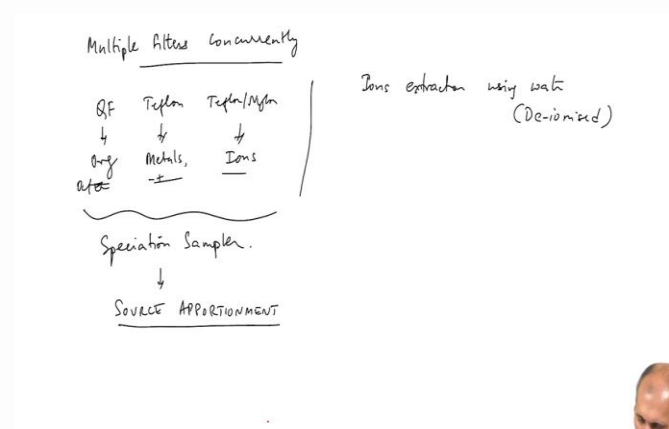 Multiple filters concurrently
QF Teflon Teflon/Nylon
Org Metals, Ions
Speciation Sampler.
SOURCE APPORTIONMENT
Ions extraction using water
(De-ionised)